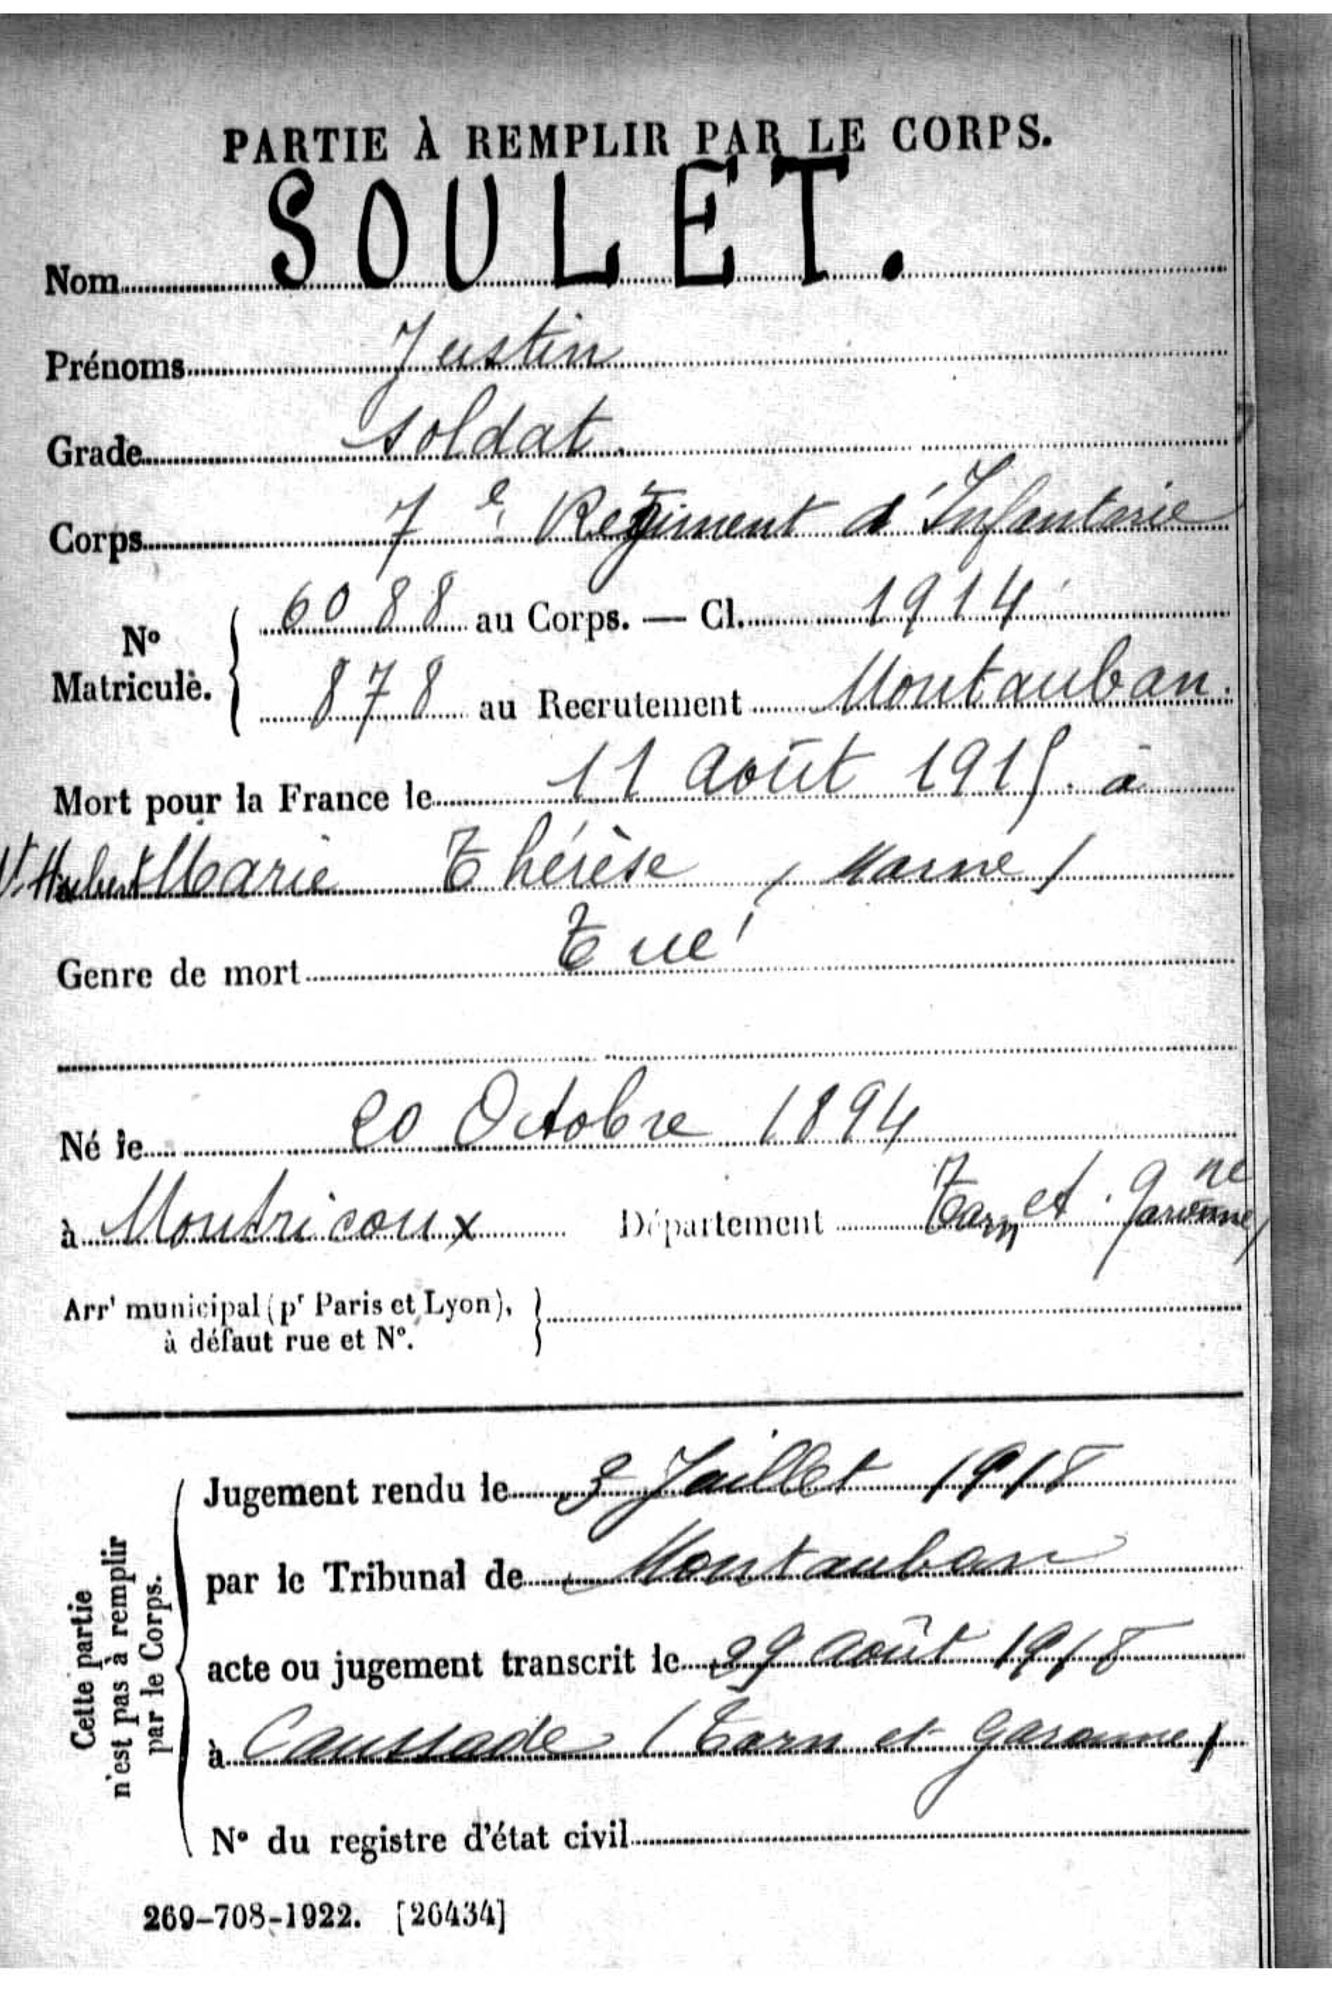 PARTIE À REMPLIR PAR LE CORPS.
Nom SOULET.
Prénoms Justin
Grade soldat
Corps 7e Régiment d'Infanterie
N° Matricule. 6088 au Corps. — Cl. 1914
878 au Recrutement Montauban.
Mort pour la France le 11 août 1915. à
St Hubert Marie Thérèse (Marne)
Genre de mort Tué
Né le 20 Octobre 1894
à Montricoux Département Tarn et Garonne
Arrt municipal (pr Paris et Lyon),
à défaut rue et N°.
Cette partie
n'est pas à remplir
par le Corps.
Jugement rendu le 3 Juillet 1918
par le Tribunal de Montauban
acte ou jugement transcrit le 29 août 1918
à Caussade (Tarn et Garonne)
N° du registre d'état civil
269-708-1922. [26434]